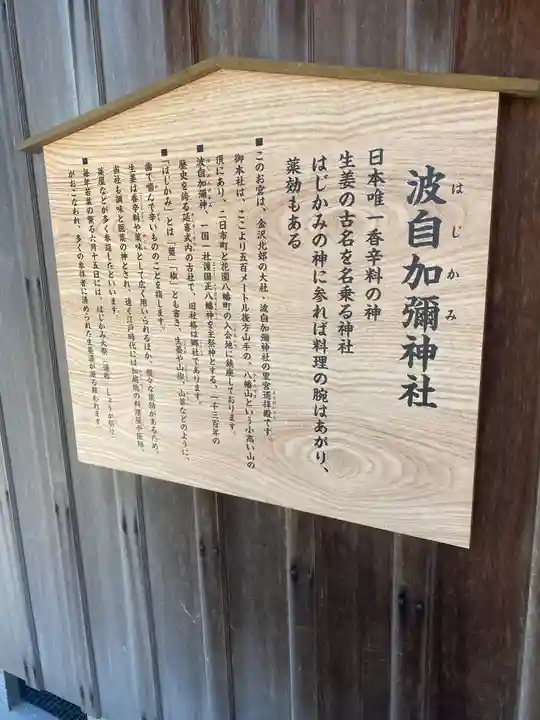 はじかみ
波自加彌神社
日本唯一香辛料の神
生姜の古名を名乗る神社
はじかみの神に参れば料理の腕はあがり、
薬効もある
■このお宮は、金沢北部の大社・波自加彌神社の里宮遥拝殿です。
御本社は、ここより五百メートル後方山手の、八幡山という小高い山の
頂にあり、二日市町と花園八幡町の入会地に鎮座しております。
■波自加彌神、一国一社護国正八幡神を主祭神とする、一千三百年の
歴史を誇る延喜式内の古社で、旧社格は郷社であります。
■「はじかみ」とは「薑」「椒」とも書き、生姜や山椒、山葵などのように、
歯で噛んで辛いもののことを指します。
生姜は香辛料や薬味として広く用いられるほか、様々な薬効があるため、
当社も調味と医薬の神とされ、遠く江戸時代には加越能の料理屋や医師、
薬屋などが多く参詣したといいます。
■毎年若葉の繁る六月十五日には、はじかみ大祭(通称 しょうが祭り)
がおこなわれ、多くの参詣者に清められた生姜湯が振る舞われます